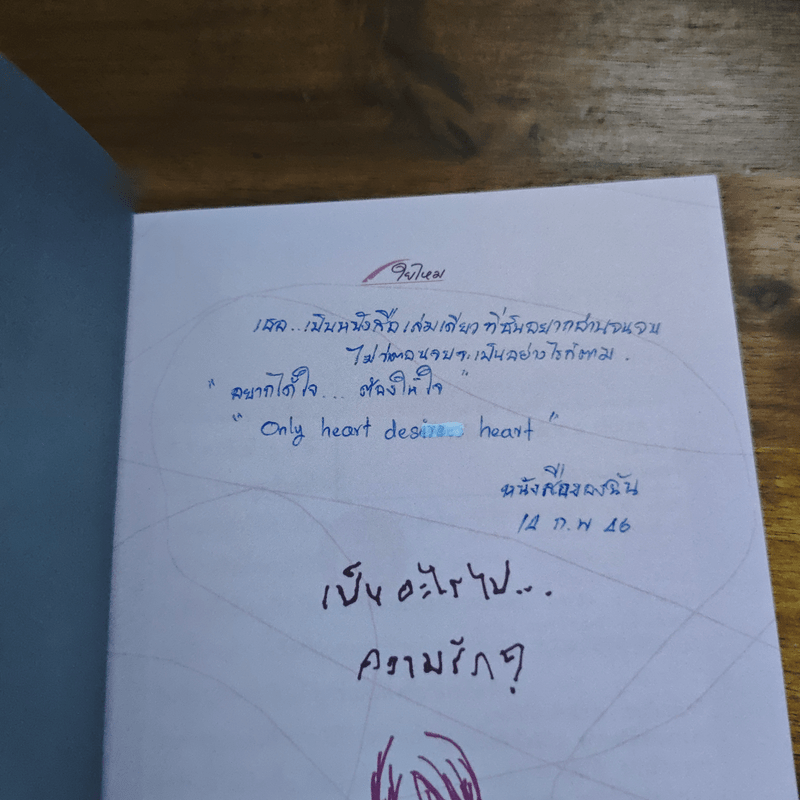 ใยไหม
เธอ...เป็นหนังสือเล่มเดียวที่ฉันอยากอ่านจนจบ
ไม่ว่าตอนจบจะเป็นอย่างไรก็ตาม.
"อยากได้ใจ... ต้องให้ใจ"
"Only heart heart"
หนังสือของฉัน
14 ก.พ 46
เป็นอะไรไป...
ความรักกู